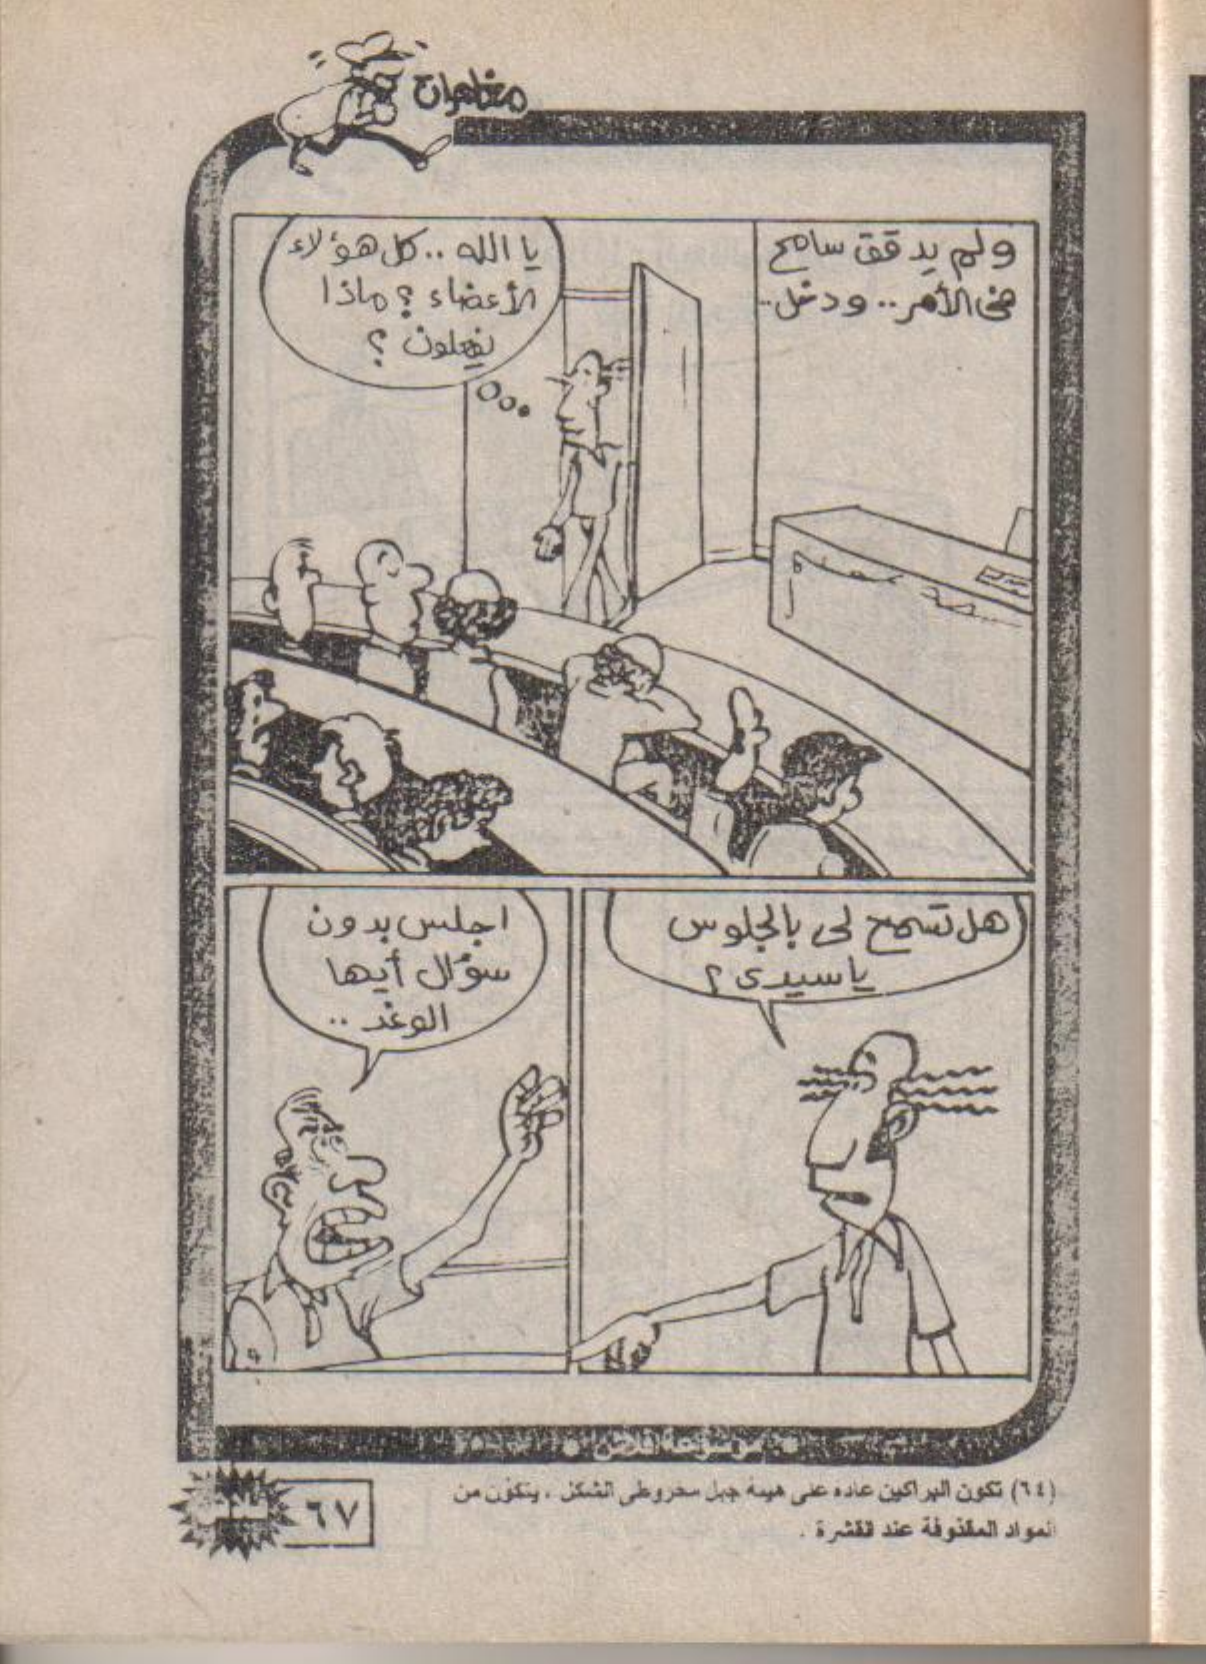 مغامرات
ولم يدقق سامح
فى الأمر.. ودخل..
يا الله .. كل هؤلاء
الأعضاء ؟ ماذا
يفعلون ؟
هل تسمح لى بالجلوس
ياسيدى ؟
اجلس بدون
سؤال أيها
الوغد ..
* موسوعة فلاش *
(٦٤) تكون البراكين عادة على هيئة جبل مخروطى الشكل ، يتكون من
المواد المقذوفة عند القشرة .
٦٧